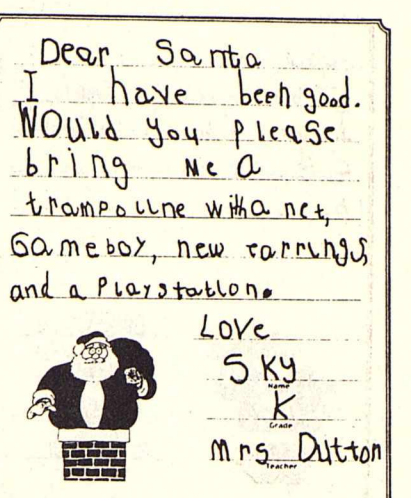 Dear Santa
I have been good.
Would you please
bring me a
trampoline with a net,
Gameboy, new earrings,
and a Playstation.
Love
Sky
Name
K
Grade
Mrs Dutton
Teacher